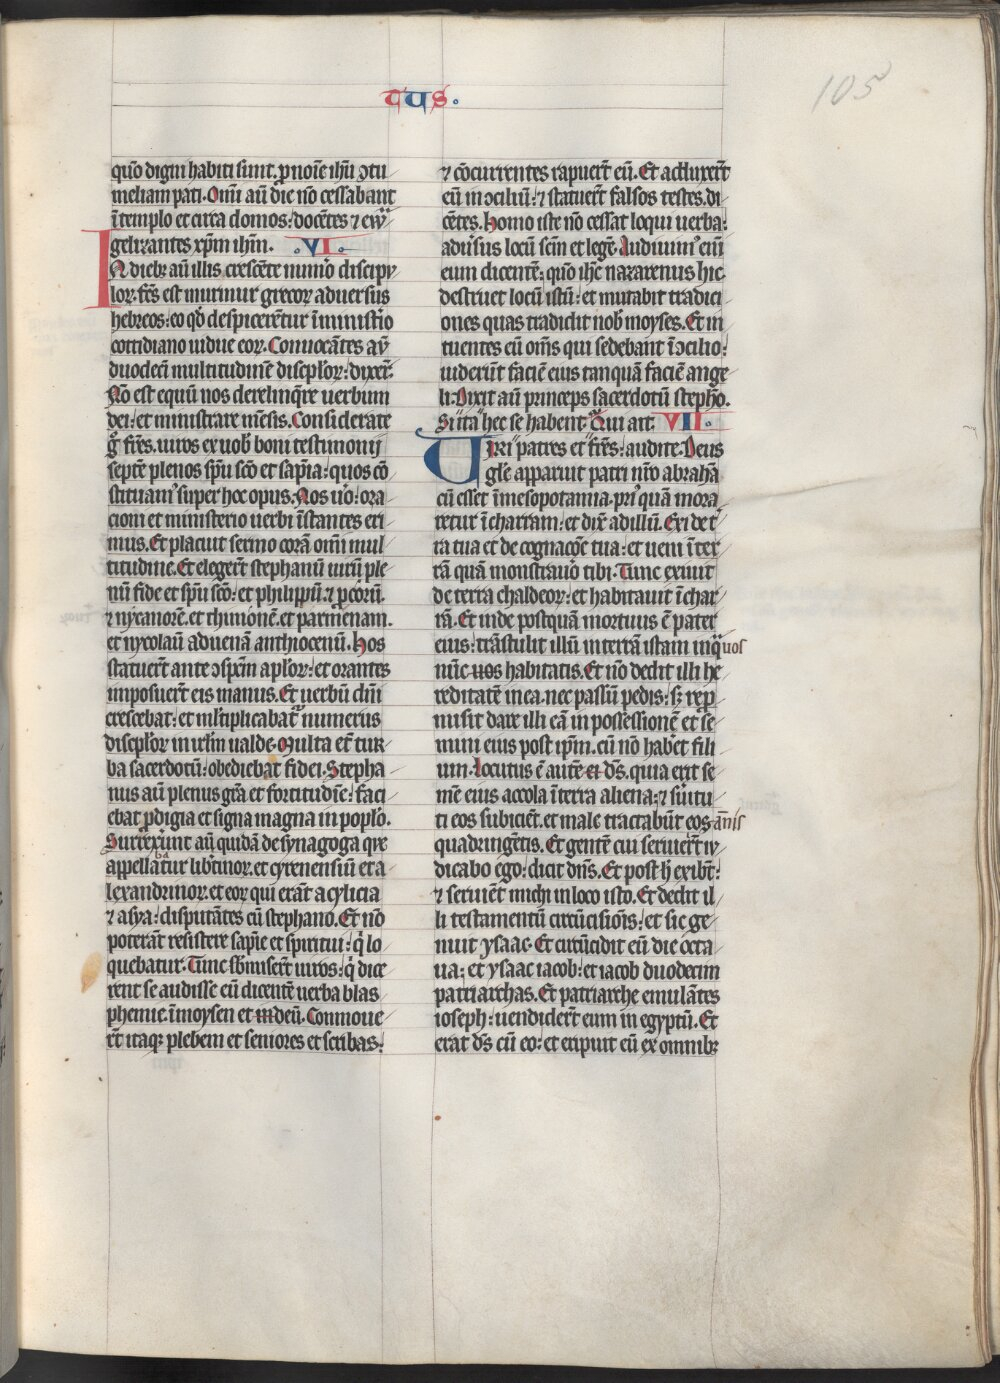 tus.
105
quo᷒ digni habiti sunt. ꝓ noīe ihū ꝯtu
meliam pati. Omī aū die nō cessabant
ī templo et circa domos: docētes ⁊ ew̄
gelizantes xp̄m ihm̄. .VI.
IN dieb⁊ aū illis crescēte num̄o discipu
lor. fc̄s est murmur grecor aduersus
hebreos: eo qd̄ despicerētur ī minist̄io
cottidiano uidue eor. Conuocātes aū
duodecī multitudinē discip̄lor: dixer̄t.
Nō est equū nos derelinq̄re uerbum
dei: et ministrare mēsis. Considerate
g̊ fr̄es. uiros ex uob̄ boni testimonij
septē plenos sp̄u sc̄o et sap̄ia: quos cō
stituam᷒ super hoc opus. Nos ůo: ora
cioni et ministerio uerbi īstantes eri
mus. Et placuit sermo corā omī mul
titudine. Et eleger̄t stephanū uirū ple
nū fide et sp̄u sc̄o: et philippū. ⁊ ꝓcorū.
⁊ nycanorē. et thimonē. et parmenam.
et nycolaū aduenā anthiocenū. Hos
statuer̄t ante ꝯspēm ap̄lor: et orantes
imposuer̄t eis manus. Et uerbū dn̄i
crescebat: et ml̄tiplicabat᷒ numerus
discip̄lor in ir̄lm ualde. Multa et̄ tur
ba sacerdotū: obediebat fidei. Stepha
nus aū plenus gr̄a et fortitudīe: faci
ebat ꝓdigia et signa magna in popl̄o.
Surrexerunt aū quidā de synagoga que
appellabatur lib̄tinor. et cyrenensiū et a
lexandrinor. et eor qui erāt a cylicia
⁊ asya: disputātes cū stephano. Et nō
poterāt resistere sap̄ie et spiritui: q̄ lo
quebatur. Tunc sb̄miser̄t uiros: q̄ dice
rent se audisse eū dicentē uerba blas
phemie ī moysen et in deū. Commoue
rt̄ itaq⁊ plebem et seniores et scribas:
⁊ cōcurrentes rapuer̄t eū. Et adduxer̄t
eū in ꝯciliū: ⁊ statuer̄t falsos testes. di
cētes. Homo iste nō cessat loqui uerba:
adu̓sus locū sc̄m et legē. Audiuim᷒ enī
eum dicentē: quo᷒ ihc̄ nazarenus hic
destruet locū istū: et mutabit tradici
ones quas tradidit nob̄ moyses. Et in
tuentes eū om̄s qui sedebant ī ꝯcilio:
uiderūt faciē eius tanquā faciē ange
li. Dixit aū princeps sacerdotū stepho᷒.
Si ita hec se habent. Qui ait. VII.
Viri patres et fr̄es: audite. Deus
gl̄e apparuit patri nr̄o abrahā
cū esset ī mesopotamia. pri᷒ quā mora
retur ī charram: et dix̄ ad illū. Exi de t̄
ra tua et de cognac̄oe tua: et ueni ī ter
rā quā monstrauo᷒ tibi. Tunc exiuit
de terra chaldeor: et habitauit ī char
rā. Et inde postquā mortuus ē pater
eius: trāstulit illū in terrā istam in q̄ uos
nūc uos habitatis. Et nō dedit illi he
reditatē in ea. nec passū pedis: s⁊ rep̄
misit dare illi eā in possessionē et se
mini eius post ip̄m. cū nō haberet fili
um. Locutus ē autē ei ds̄. quia erit se
mē eius accola ī terra aliena: ⁊ su̓itu
ti eos subicient. et male tractabūt eos annis
quadringētis. Et gentē cui seruiert̄ iu
dicabo ego: dicit dn̄s. Et post h̄ exibūt:
⁊ seruiēt michi in loco isto. Et dedit il
li testamentū circūcisiōis: et sic ge
nuit ysaac. Et circūcidit eū die octa
ua: et ysaac iacob: et iacob duodecim
patriarchas. Et patriarche emulātes
ioseph: uendider̄t eum in egyptū. Et
erat ds̄ cū eo: et eripuit eū ex omnib⁊